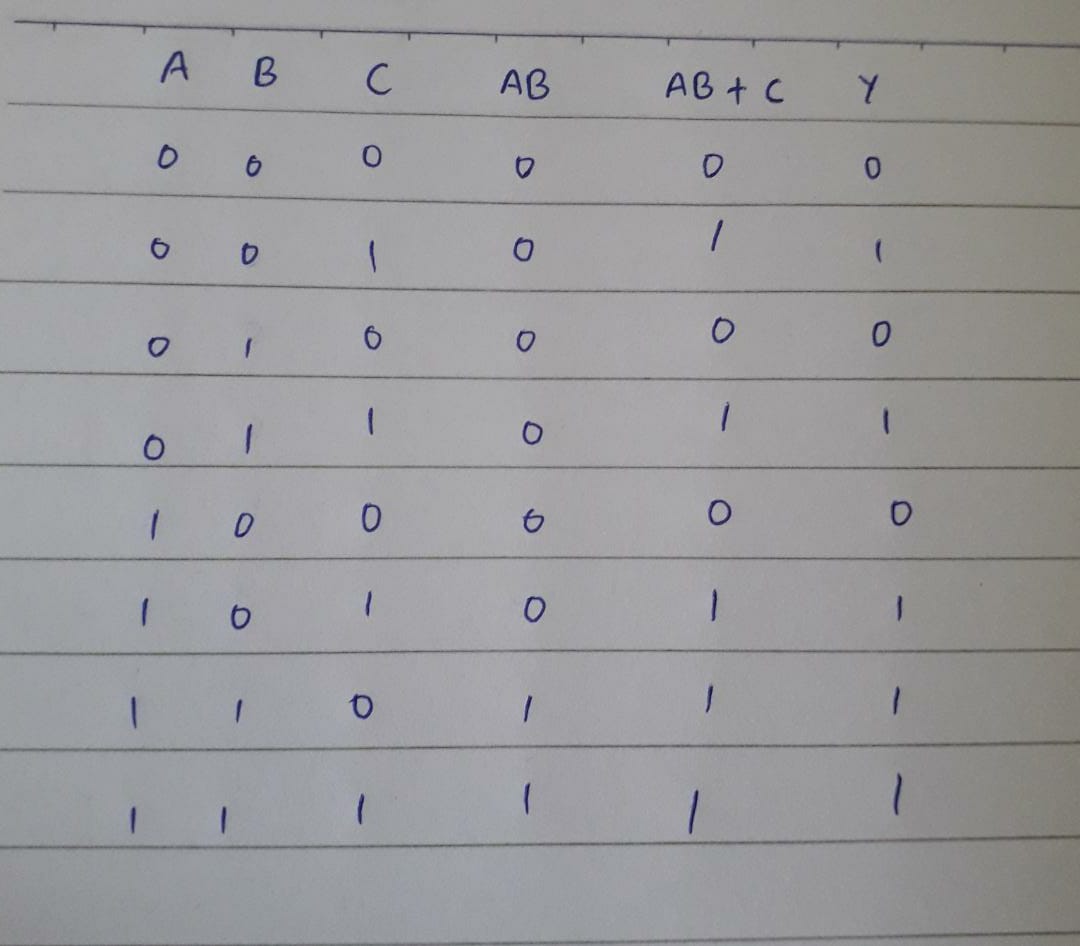 A B C AB AB + C Y
0 0 0 0 0 0
0 0 1 0 1 1
0 1 0 0 0 0
0 1 1 0 1 1
1 0 0 0 0 0
1 0 1 0 1 1
1 1 0 1 1 1
1 1 1 1 1 1